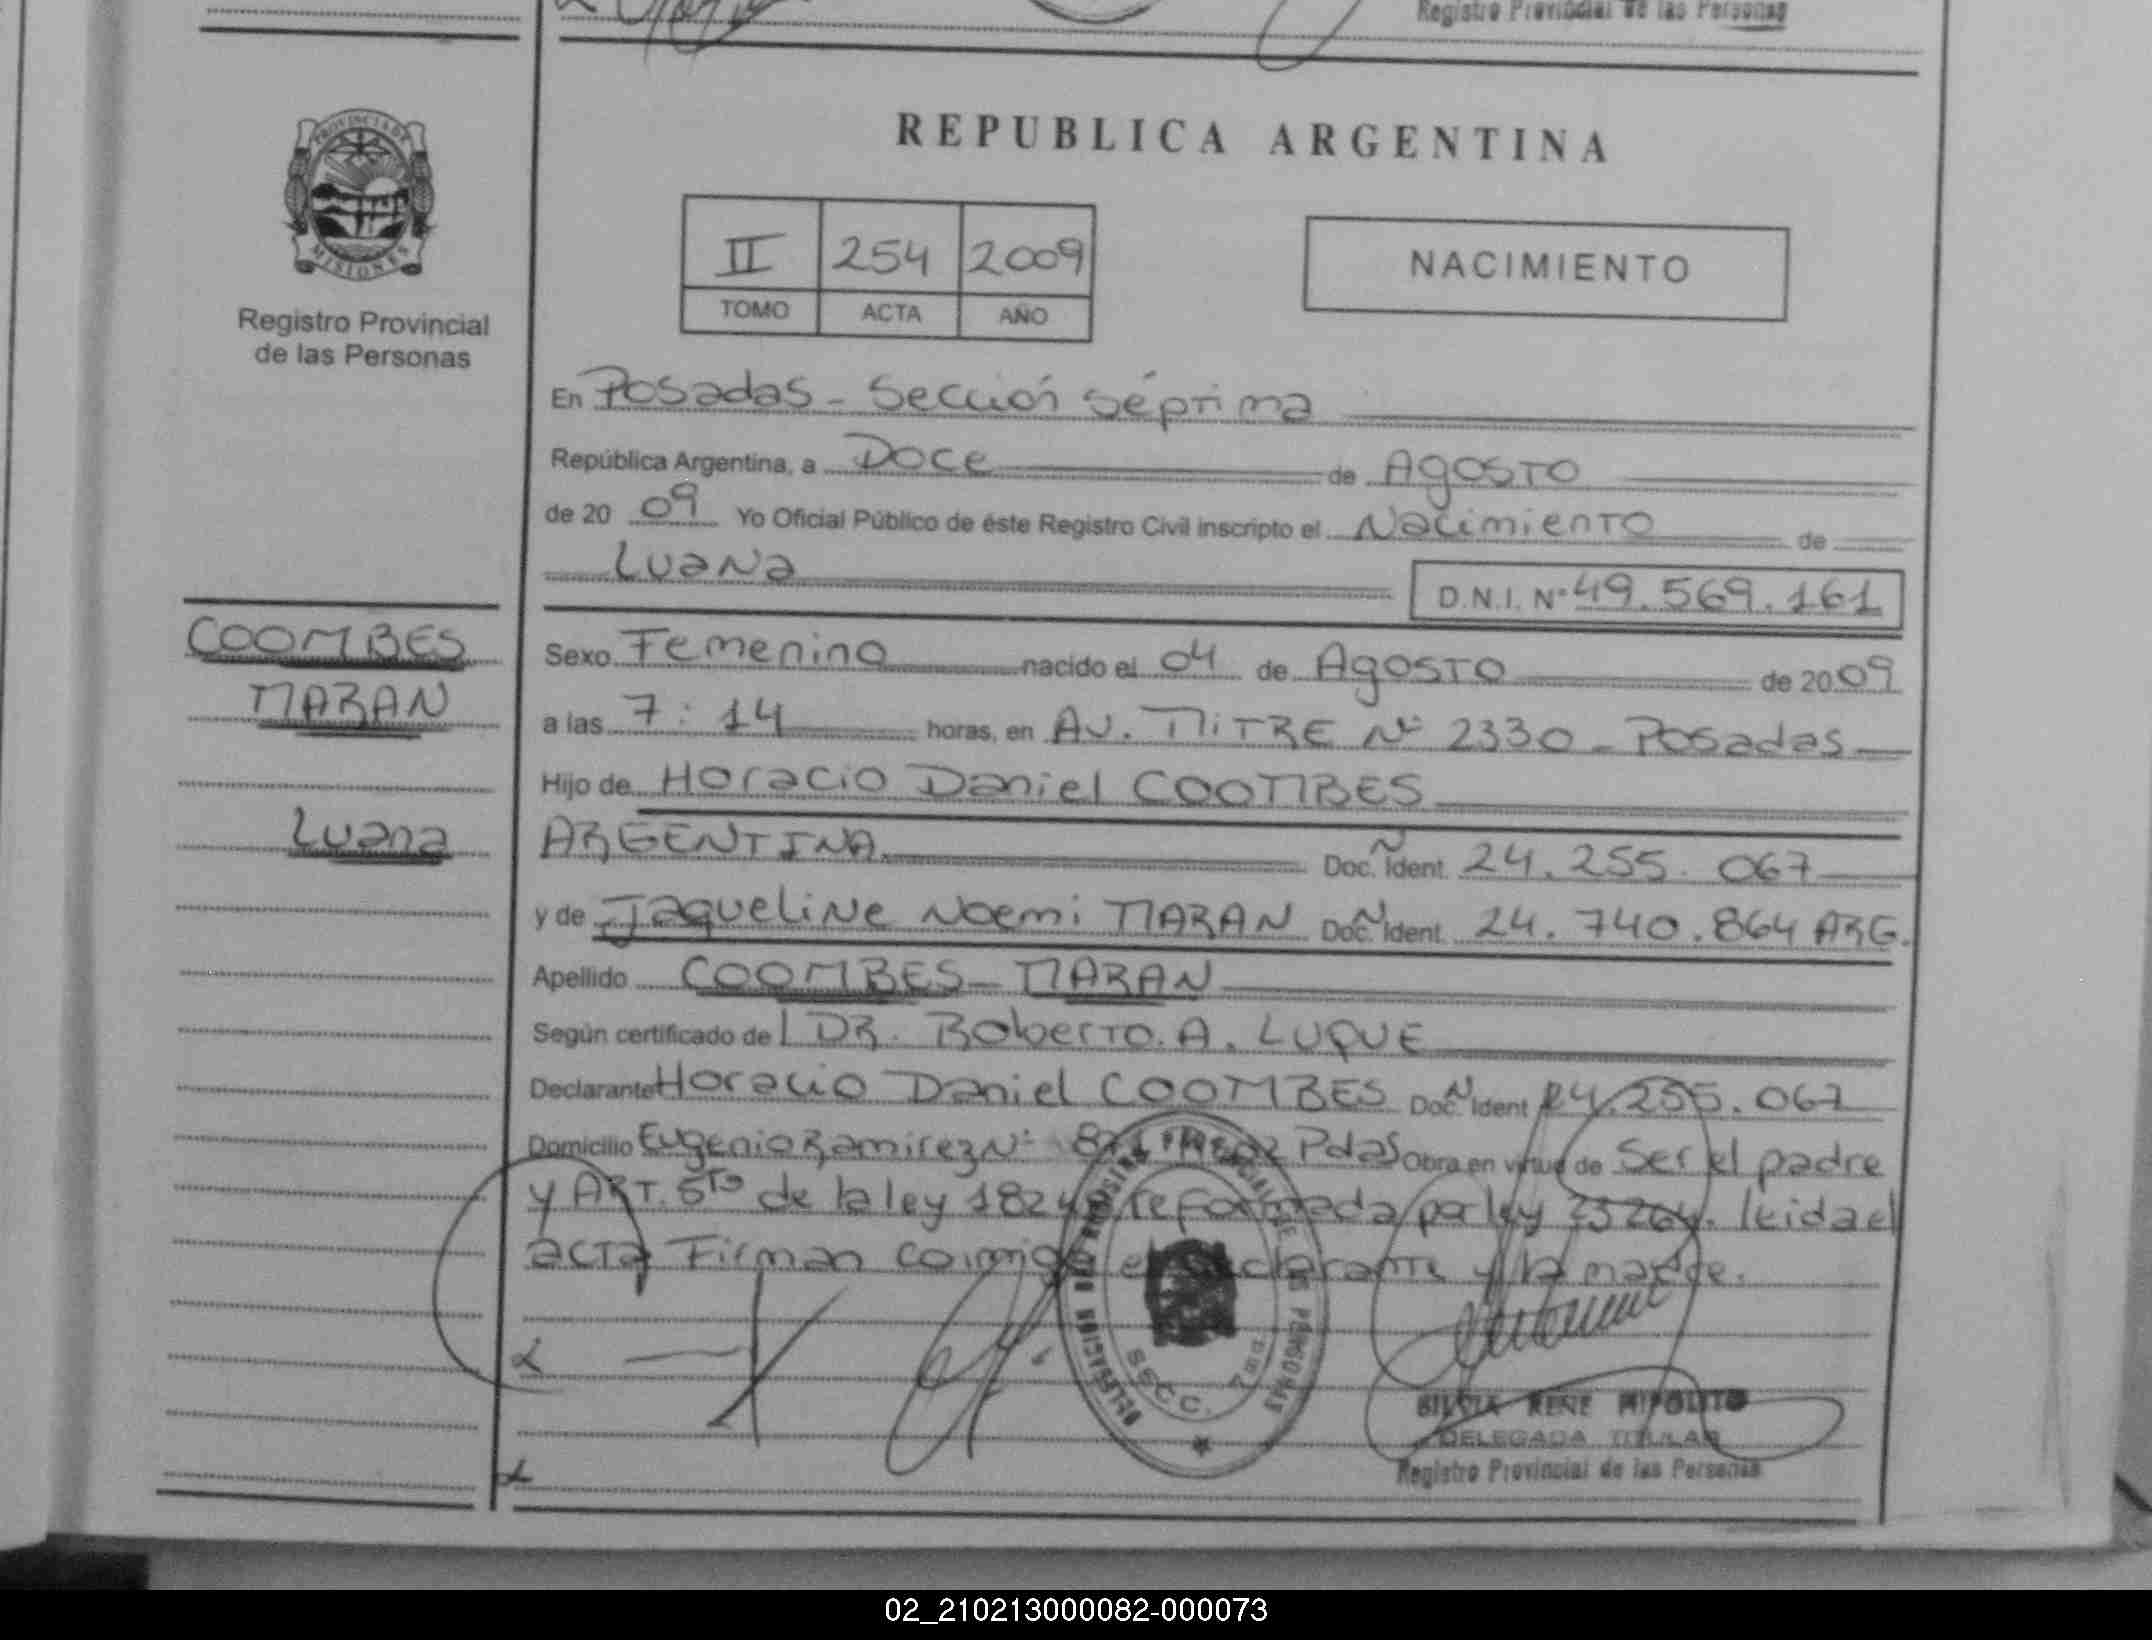 Registro Provincial de las Personas
PROVINCIA DE
MISIONES
Registro Provincial
de las Personas
REPUBLICA ARGENTINA
II 254 2009
TOMO ACTA AÑO
NACIMIENTO
En Posadas - Sección séptima
República Argentina, a Doce de Agosto
de 20 09 Yo Oficial Público de éste Registro Civil inscripto el Nacimiento de
Luana
D.N.I. Nº 49.569.161
COOMBES
MARAN
Luana
Sexo Femenino nacido el 04 de Agosto de 20 09
a las 7:14 horas, en Av. MITRE Nº 2330 - Posadas
Hijo de Horacio Daniel COOMBES
ARGENTINA Doc. Ident. N 24.255.067
y de Jaqueline Noemi MARAN Doc. Ident. N 24.740.864 ARG.
Apellido COOMBES - MARAN
Según certificado de l DR. Roberto. A. LUQUE
Declarante Horacio Daniel COOMBES Doc. Ident N 24.255.067
Domicilio Eugenio Ramirez Nº Pdas Obra en virtud de Ser el padre
y ART. 5to de la ley reformada por ley 23264. leida el
acta Firman conmigo el declarante y la madre.
S.S.C.C.
SILVIA RENE HIPOLITO
DELEGADA TITULAR
Registro Provincial de las Personas
02_210213000082-000073